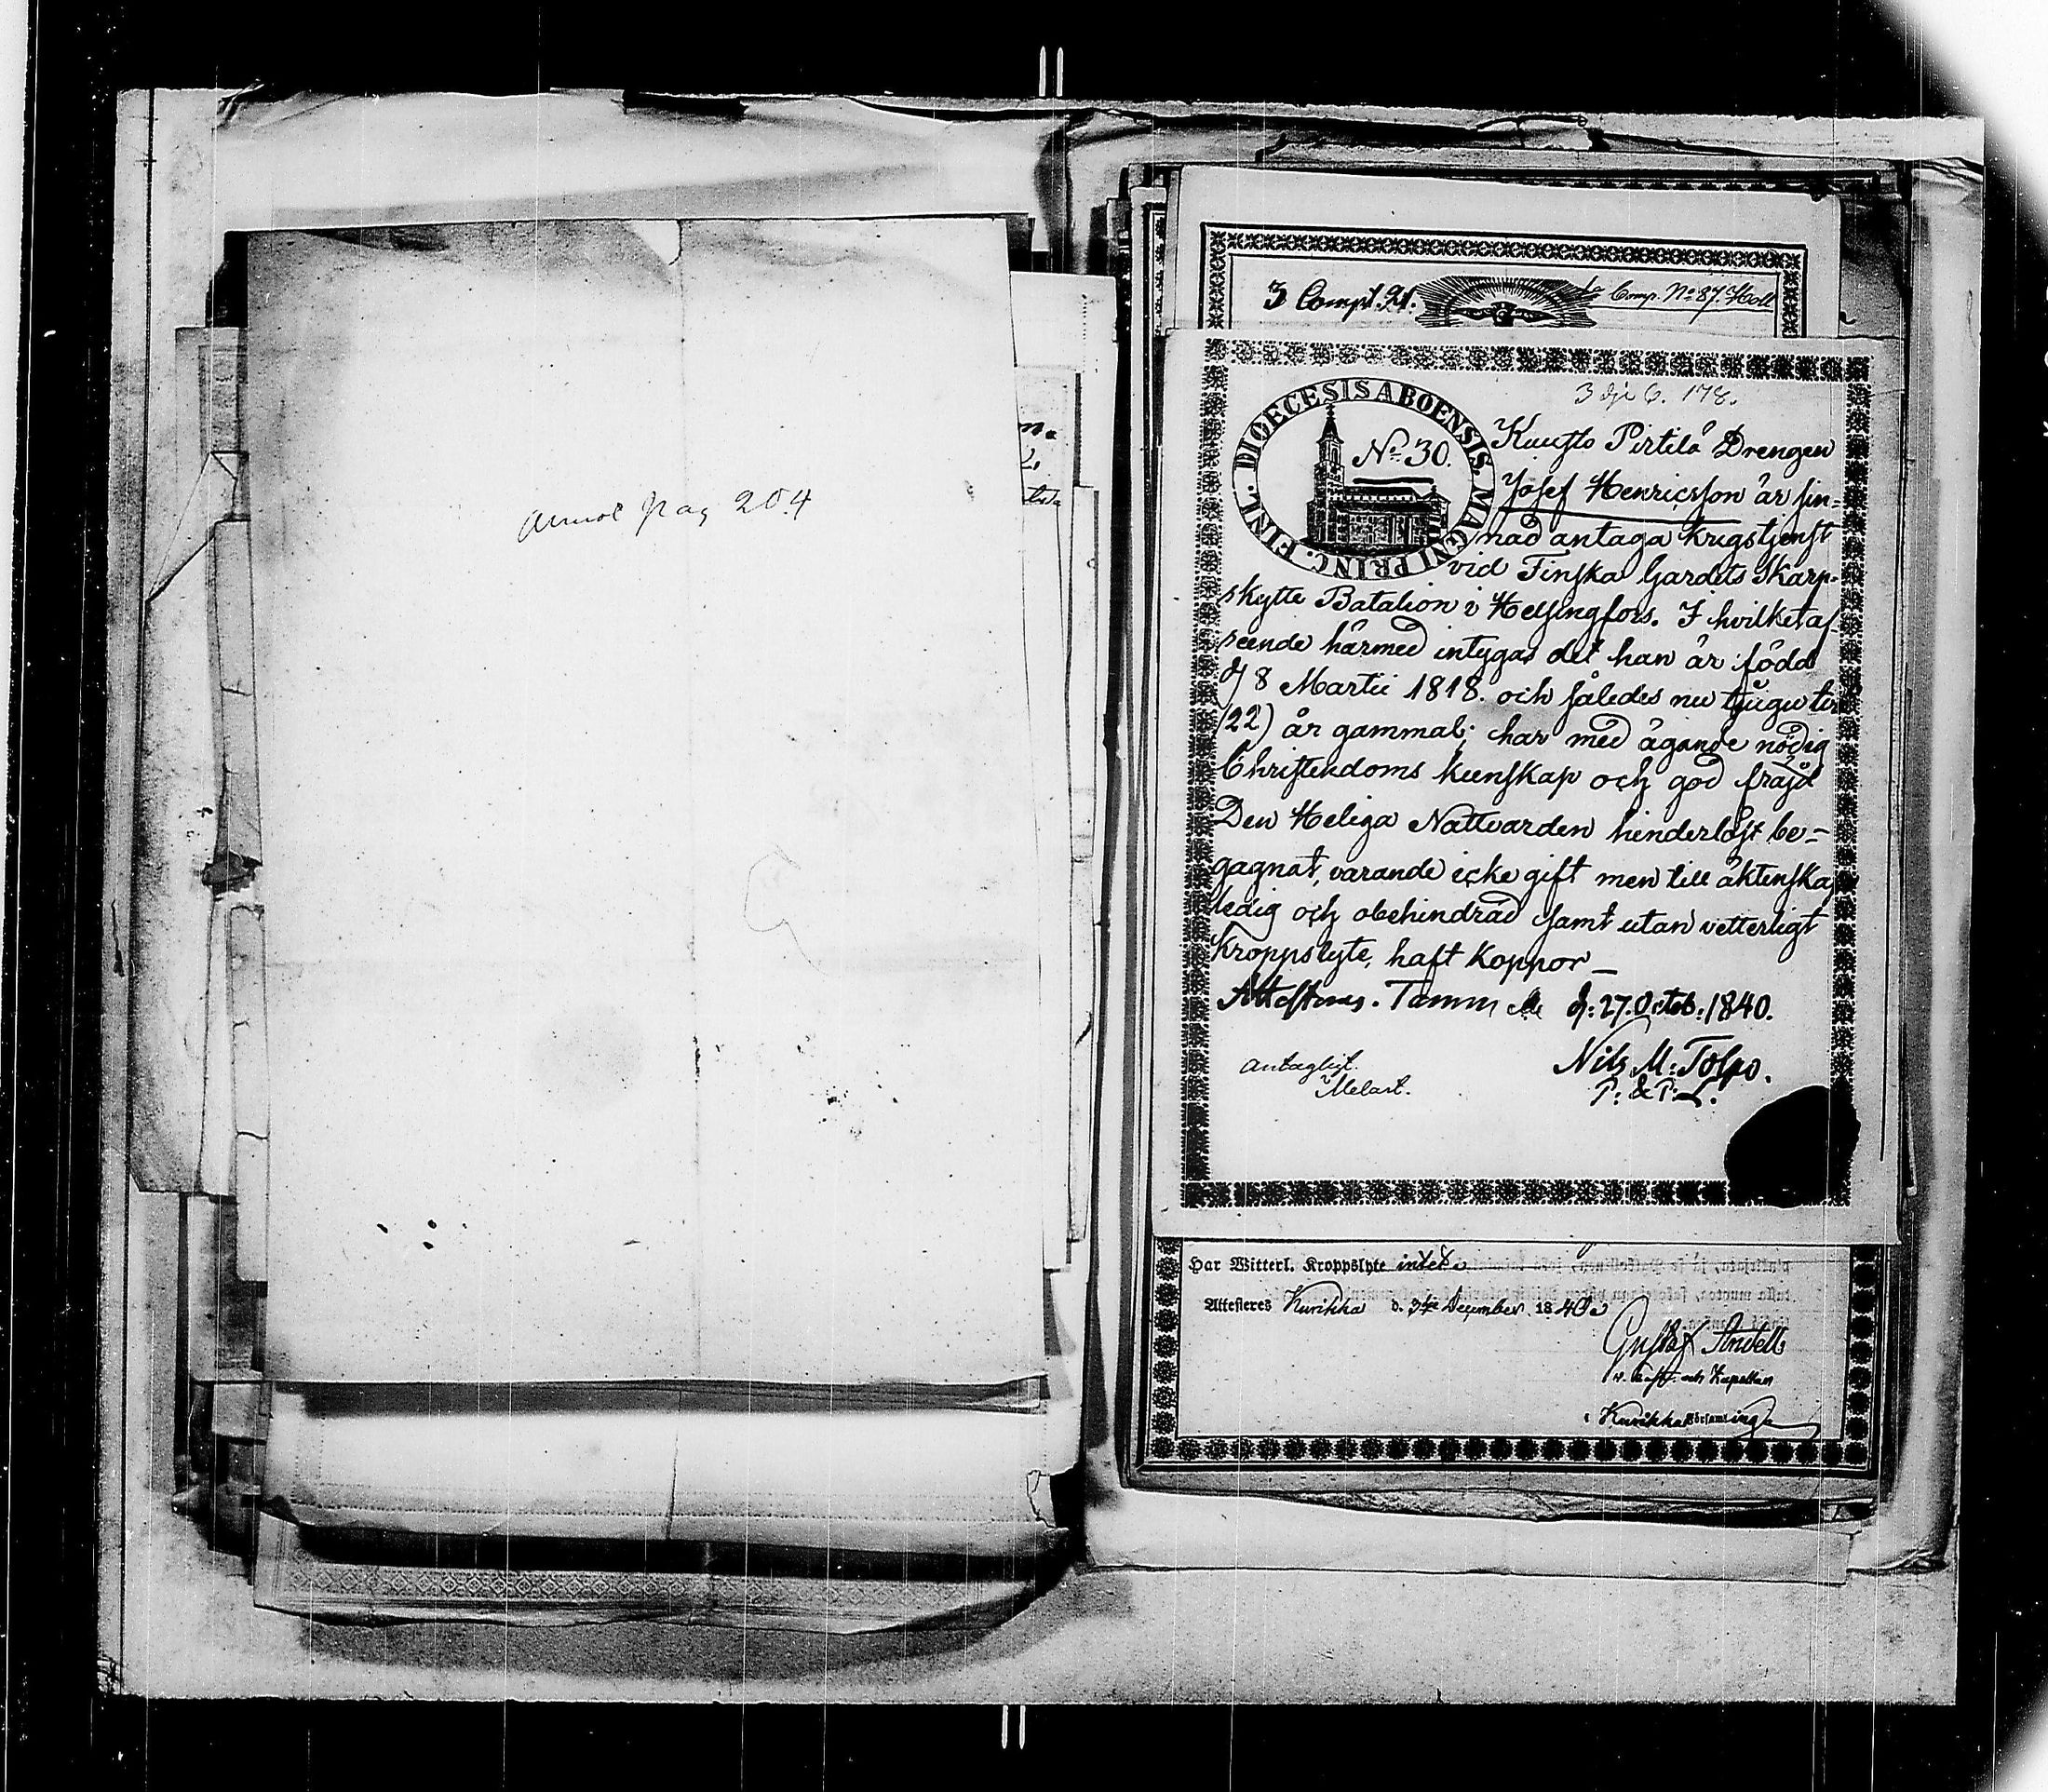 pag 204
3 Comp. 21.
Comp. No 87. Holl
3dje C. 178.
DIOECESIS ABOENSIS. MAGNI PRINC. FINL.
No 30.
Pirtilä Drengen
Josef Henricsson är sin-
nad antaga Krigstjenst
vid Finska Gardets Skarp-
skytte Batalion i Helsingfors. I hvilket af-
seende härmed intygas det han är född
d 8 Martii 1818. och således nu tjugu två
(22) år gammal; har med ägande nödig
Christendoms kunskap och god fräjd
Den Heliga Nattvarden hinderlöst be-
gagnat, varande icke gift men till äktenskap
ledig och obehindrad samt utan vetterligt
Kroppslyte, haft Koppor —
d: 27. Octob: 1840.
Nils M: Tolpo.
P: & P: L.
antagligt.
Melart.
Har Witterl. Kroppslyte intet
Attesteres Kurikka d. 3de December 1840
Gustaf
och Kapellan
i Kurikka Församling